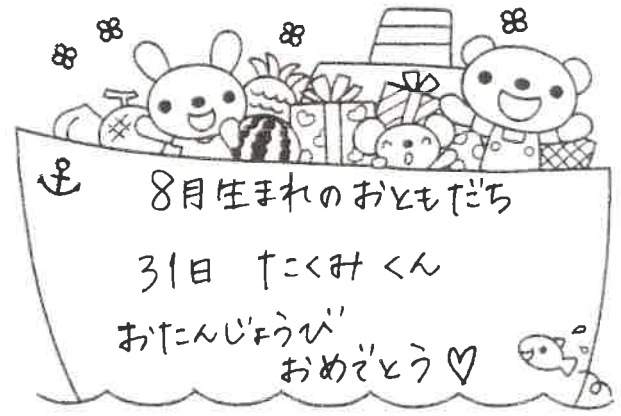 8月生まれのおともだち
31日 たくみ くん
おたんじょうび
おめでとう♡